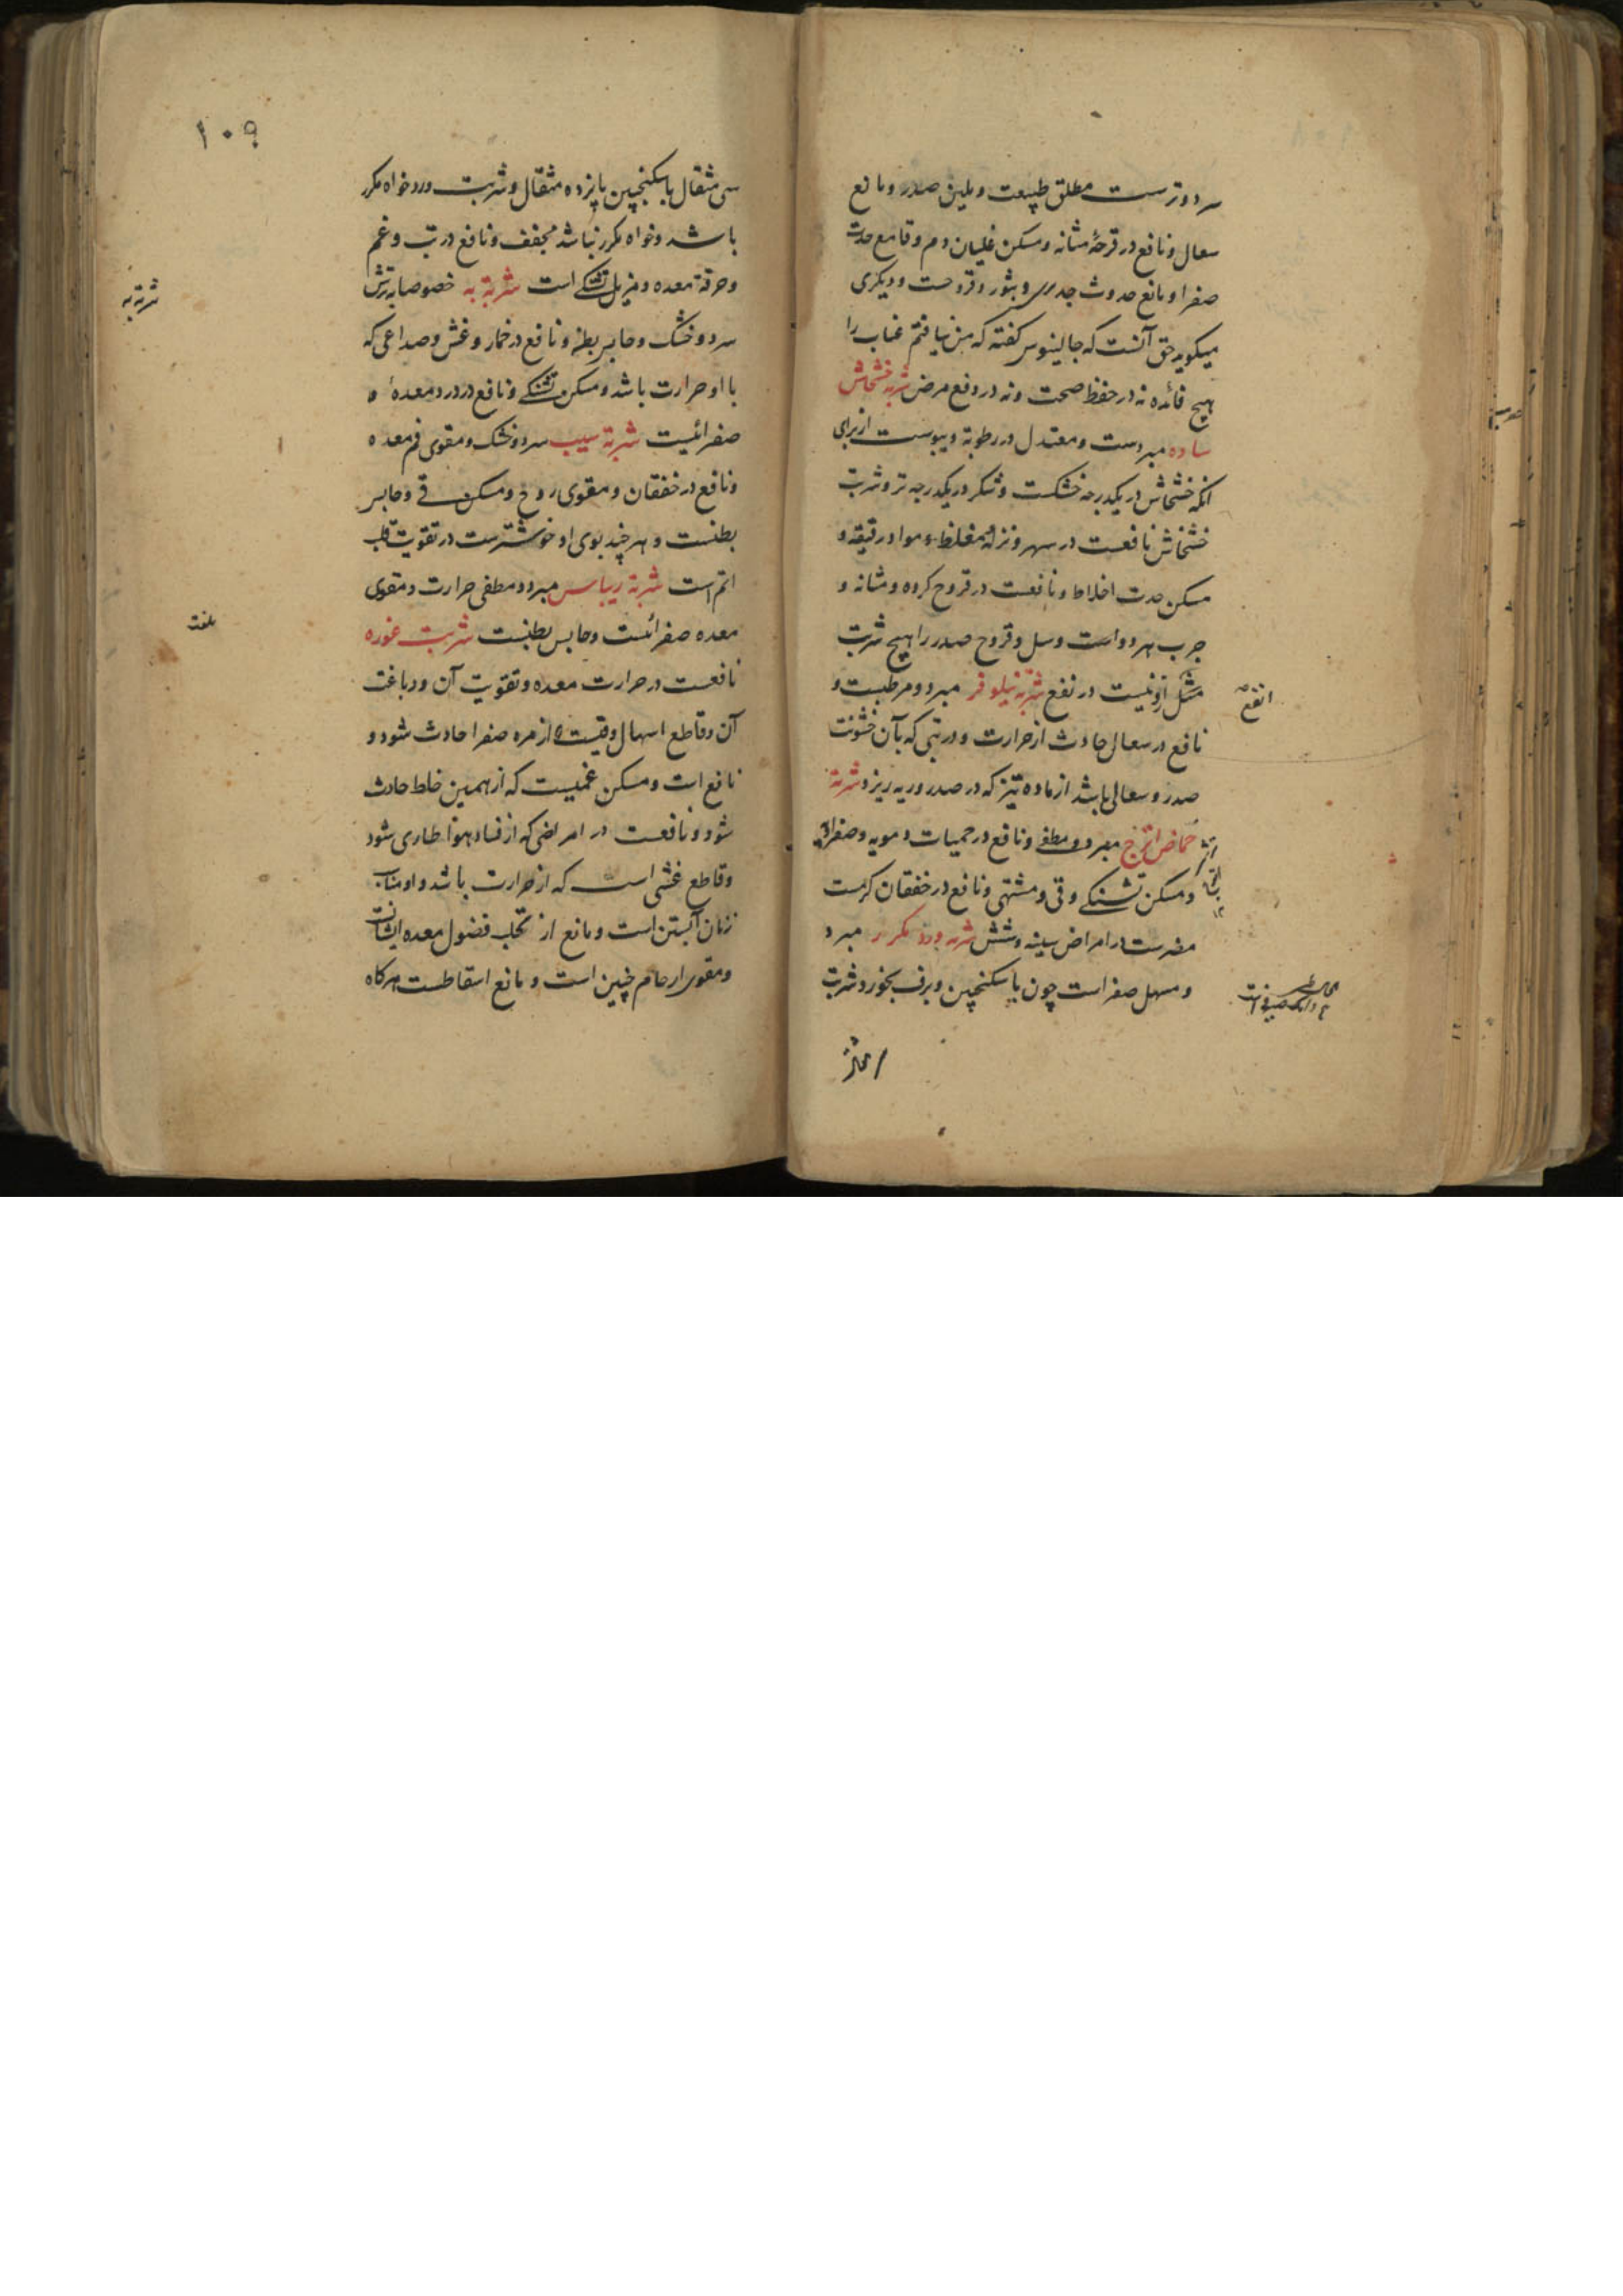 سرد و ترست مطلق طبیعت و ملین صدر و مانع
سعال و نافع در قرحهٔ مثانه و مسکن غلیان دم و قامع حدت
صفرا و مانع حدوث جدری و بثور و قروحست و دیگری
میکوید حق آنست که جالینوس کفته که من نیافتم عناب را
هیچ فائده نه در حفظ صحت و نه در دفع مرض شربة خشخاش
ساده مبردست و معتدل در رطوبة و یبوست از برای
انکه خشخاش در یکدرجه خشکست و شکر در یکدرجه تر و شربت
خشخاش نافعست در سهر و نزله مغلظ مواد رقیقه و
مسکن حدت اخلاط و نافعست در قروح کرده و مثانه و
جرب هر دو است و سل و قروح صدر را هیچ شربت
مثل ازو نیست در نفع شربة نیلوفر مبرد و مرطبست و
انفع
نافع در سعال حادث از حرارت و در تبی که بآن خشونت
صدر و سعالی باشد از ماده تیز که در صدر و ریه ریزد شربة
حماض اترج مبرد و مطفی و نافع در حمیات دمویه و صفراویه
و مسکن تشنکی و قی و مشتهی و نافع در خفقان کرمست
مضرست در امراض سینه و شش شربه ورد مکرر مبرد
و مسهل صفراست چون با سکنجبین و برف بخورد شربت
۱۰۹
سی مثقال با سکنجبین پانزده مثقال و شربت ورد خواه مکرر
باشد و خواه مکرر نباشد مجفف و نافع در تب و غم
و حرقة معده و مزیل تشنکی است شربة به خصوصا به ترش
شربة به
سرد و خشک و حابس بطن و نافع در خمار و غش و صداعی که
با او حرارت باشد و مسکن تشنکی و نافع در درد معده و
صفرائیست شربة سیب سرد و خشک و مقوی فم معده
و نافع در خفقان و مقوی روح و مسکن قی و حابس
بطنست و هر چند بوی او خوشترست در تقویت قلب
اتم است شربة ریباس مبرد و مطفی حرارت و مقوی
معده صفرائست و حابس بطنست شربت غوره
بلغت
نافعست در حرارت معده و تقویت آن و دباغت
آن و قاطع اسهال و قیست که از مره صفرا حادث شود و
نافع است و مسکن غمیست که از همین خلط حادث
شود و نافعست در امراضی که از فساد هوا طاری شود
و قاطع غشی است که از حرارت باشد و او مناسب
زنان آبستن است و مانع از تحلب فضول معده ایشانست
و مقوی ارحام چنین است و مانع اسقاطست هرکاه